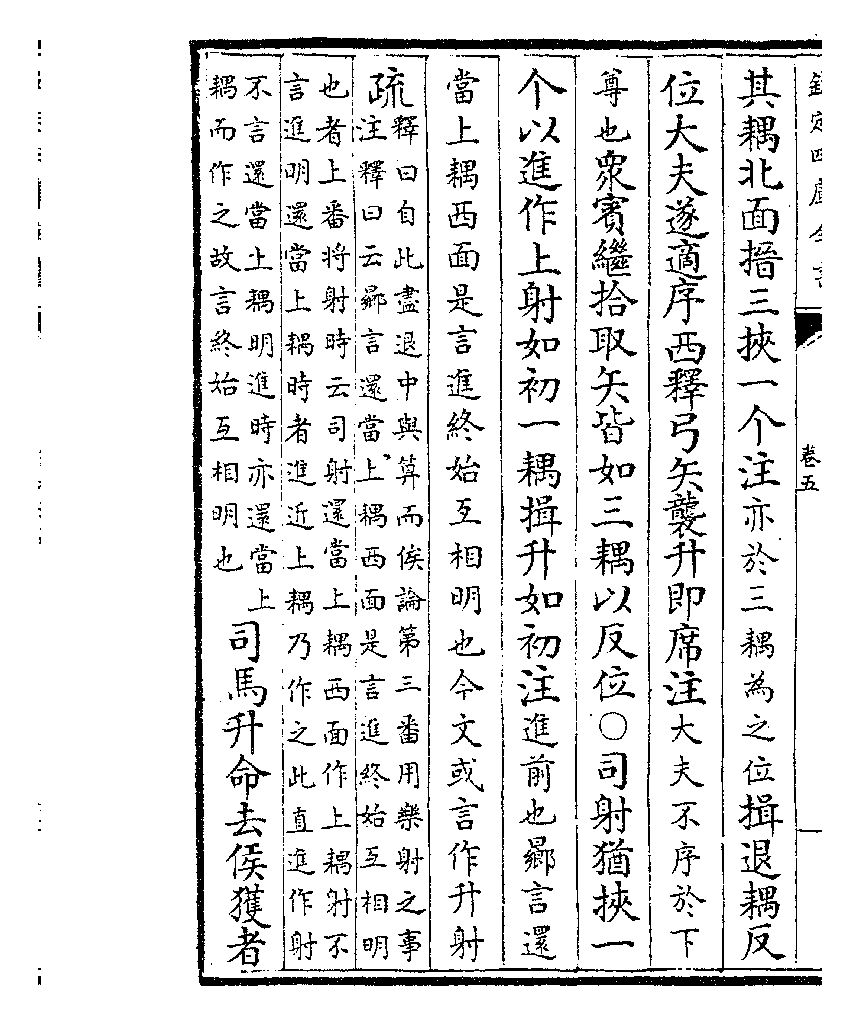 欽定四庫全書
卷五
其耦北面搢三挾一个注亦於三耦為之位揖退耦反
位大夫遂適序西釋弓矢襲升即席注大夫不序於下
尊也眾賓繼拾取矢皆如三耦以反位○司射猶挾一
个以進作上射如初一耦揖升如初注進前也曏言還
當上耦西面是言進終始互相明也今文或言作升射
疏釋曰自此盡退中與算而俟論第三番用樂射之事
注釋曰云曏言還當上耦西面是言進終始互相明
也者上番將射時云司射還當上耦西面作上耦射不
言進明還當上耦時者進近上耦乃作之此直進作射
不言還當上耦明進時亦還當上
耦而作之故言終始互相明也
司馬升命去侯獲者